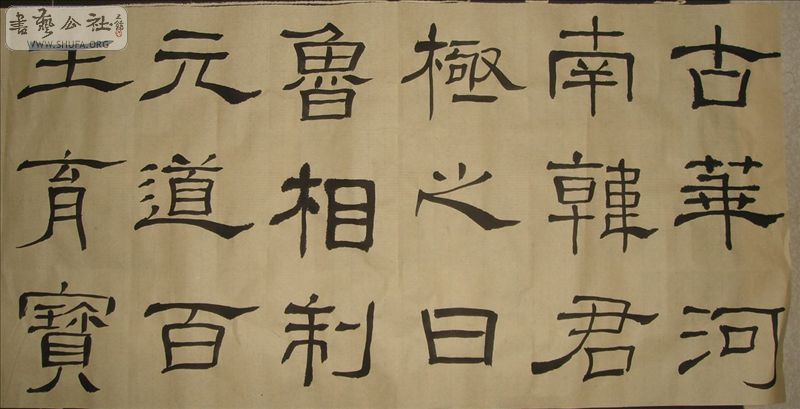 書藝公社
WWW.SHUFA.ORG
古華河
南韓君
極之日
魯相制
元道百
王育寶